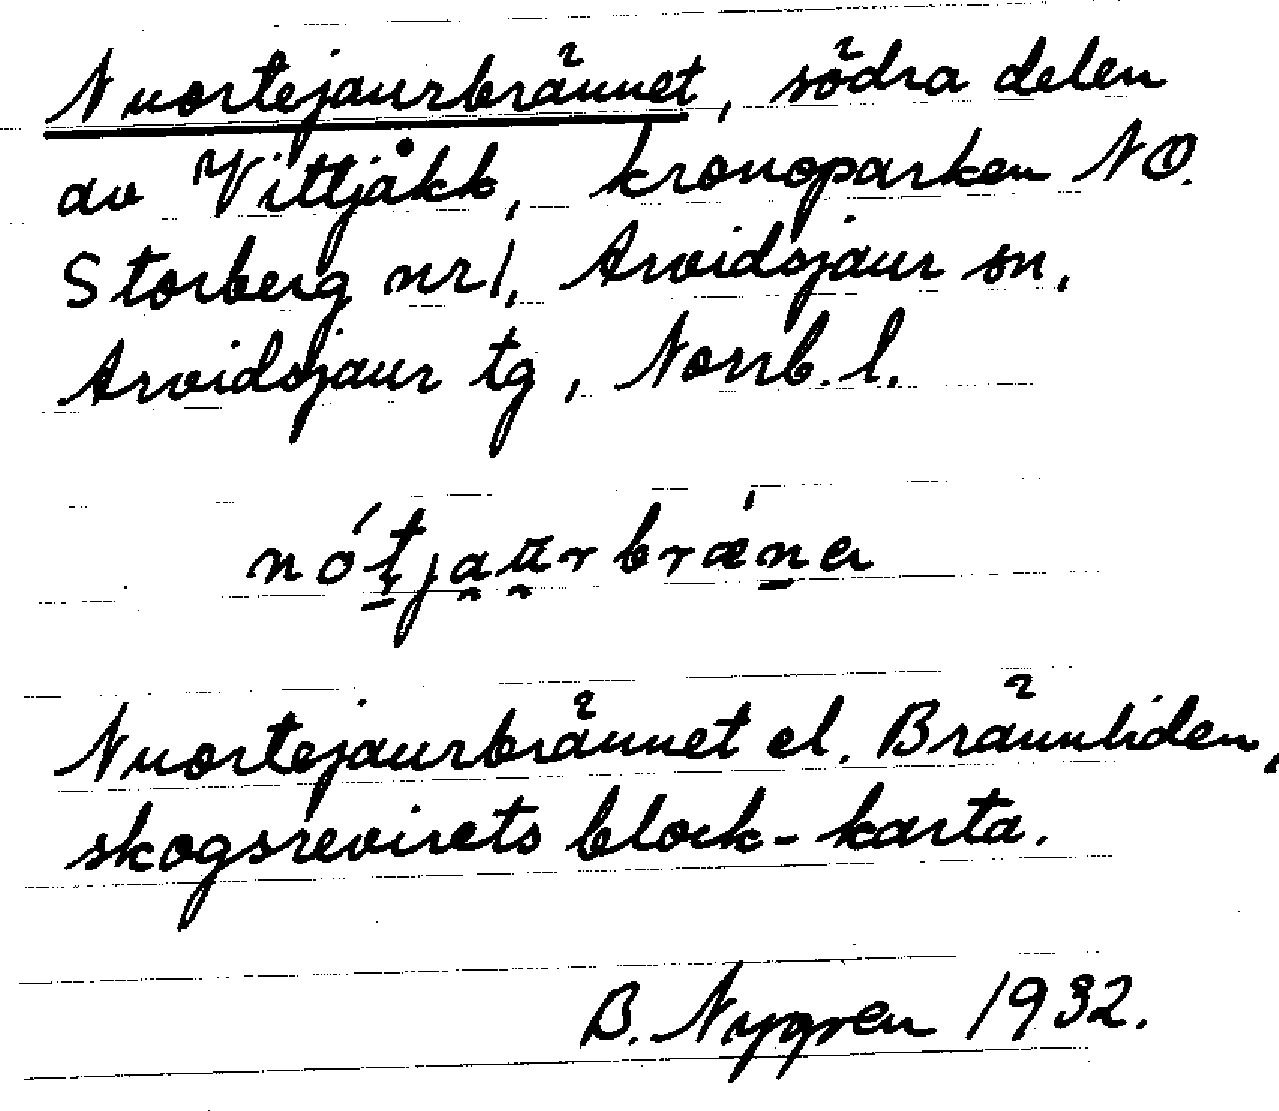 Nuortejaurbrännet, södra delen
av Vittjåkk, kronoparken NO.
Storberg nr 1, Arvidsjaur sn,
Arvidsjaur tg, Norrb. l.
nó́ṯja̯u̯r bræ̀ṉa
Nuortejaurbrännet el. Brännliden,
skogsrevirets block-karta.
B. Nygren 1932.